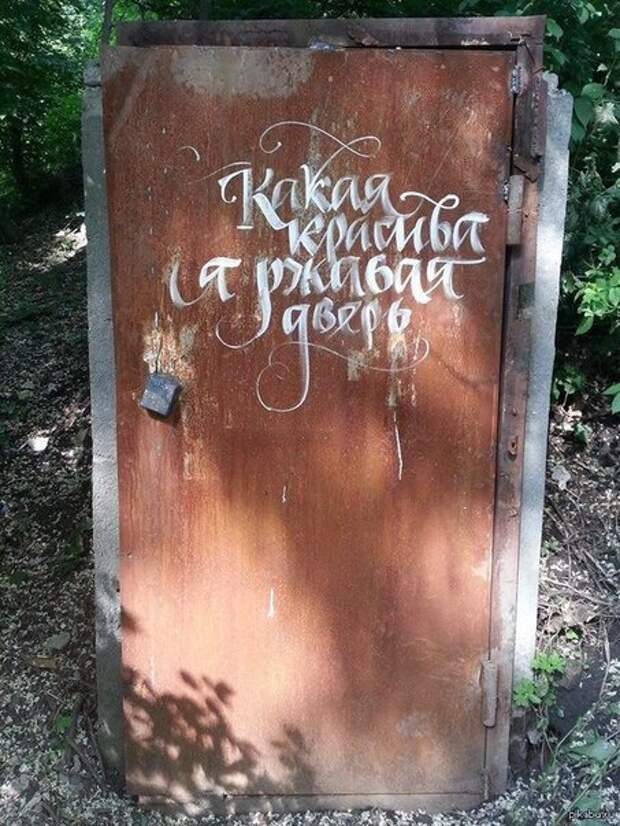 Какая
красива
я ржавая
дверь
pikabu.ru